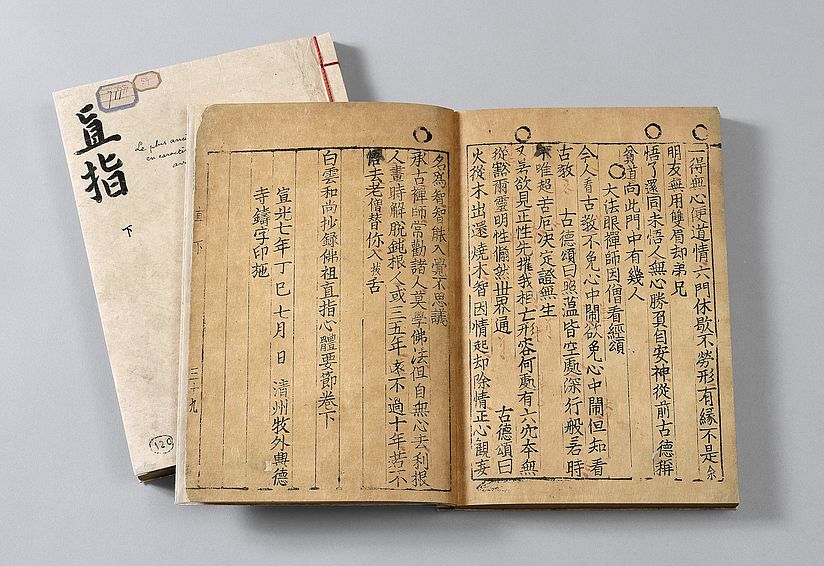 直指
下
Le plus anci
en caractè
一得無心便道情六門休歇不勞形有緣不是余
朋友無用雙眉却弟兄
悟了還同未悟人無心勝負自安神從前古德稱
貧道向此門中有幾人
大法眼禪師因僧看經頌
今人看古教不免心中鬧欲免心中鬧但知看
古教 古德頌曰照薀皆空處深行般若時
唯超苦厄決定證無生
又若欲見正性先摧我相亡形容何處有六穴本無
從豁爾靈明性翛然世界通 古德頌曰
火從木出還燒木智因情起却除情正心觀妄
為智智能入覺不思議
承古禪師常勸諸人莫學佛法但自無心去利根
人晝時解脫鈍根人或三五年遠不過十年若不
悟去老僧替你入拔舌
白雲和尚抄錄佛祖直指心體要節卷下
宣光七年丁巳七月 日 清州牧外興德
寺鑄字印施
直下
三十九